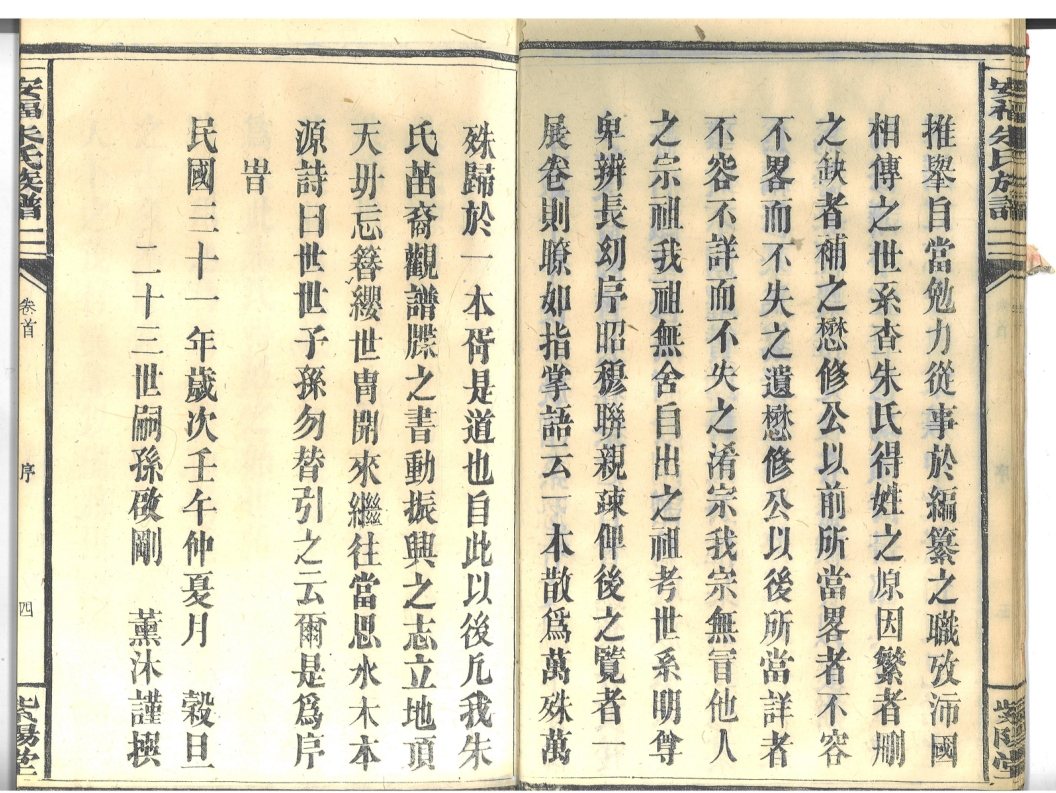 安福朱氏族譜
推舉自當勉力從事於編纂之職攷沛國
相傳之世系查朱氏得姓之原因繁者刪
之缺者補之懋修公以前所當畧者不容
不畧而不失之遺懋修公以後所當詳者
不容不詳而不失之淆宗我宗無冒他人
之宗祖我祖無舍自出之祖考世系明尊
卑辨長幼序昭穆聯親疎俾後之覽者一
展卷則瞭如指掌語云一本散爲萬殊萬
殊歸於一本胥是道也自此以後凡我朱
氏苗裔觀譜牒之書動振興之志立地頂
天毋忘簪纓世冑開來繼往當思水木本
源詩曰世世子孫勿替引之云爾是爲序
旹
民國三十一年歲次壬午仲夏月 穀旦
二十三世嗣孫儆剛 薰沐謹撰
安福朱氏族譜
卷首
序
四
紫陽堂